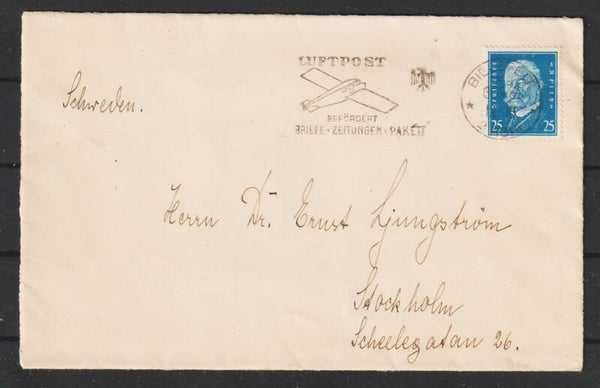 LUFTPOST
BEFÖRDERT
BRIEFE · ZEITUNGEN · PAKETE
Deutsches Reich
25 25
Schweden.
Herrn Dr. Ernst Ljungström
Stockholm
Scheelegatan 26.